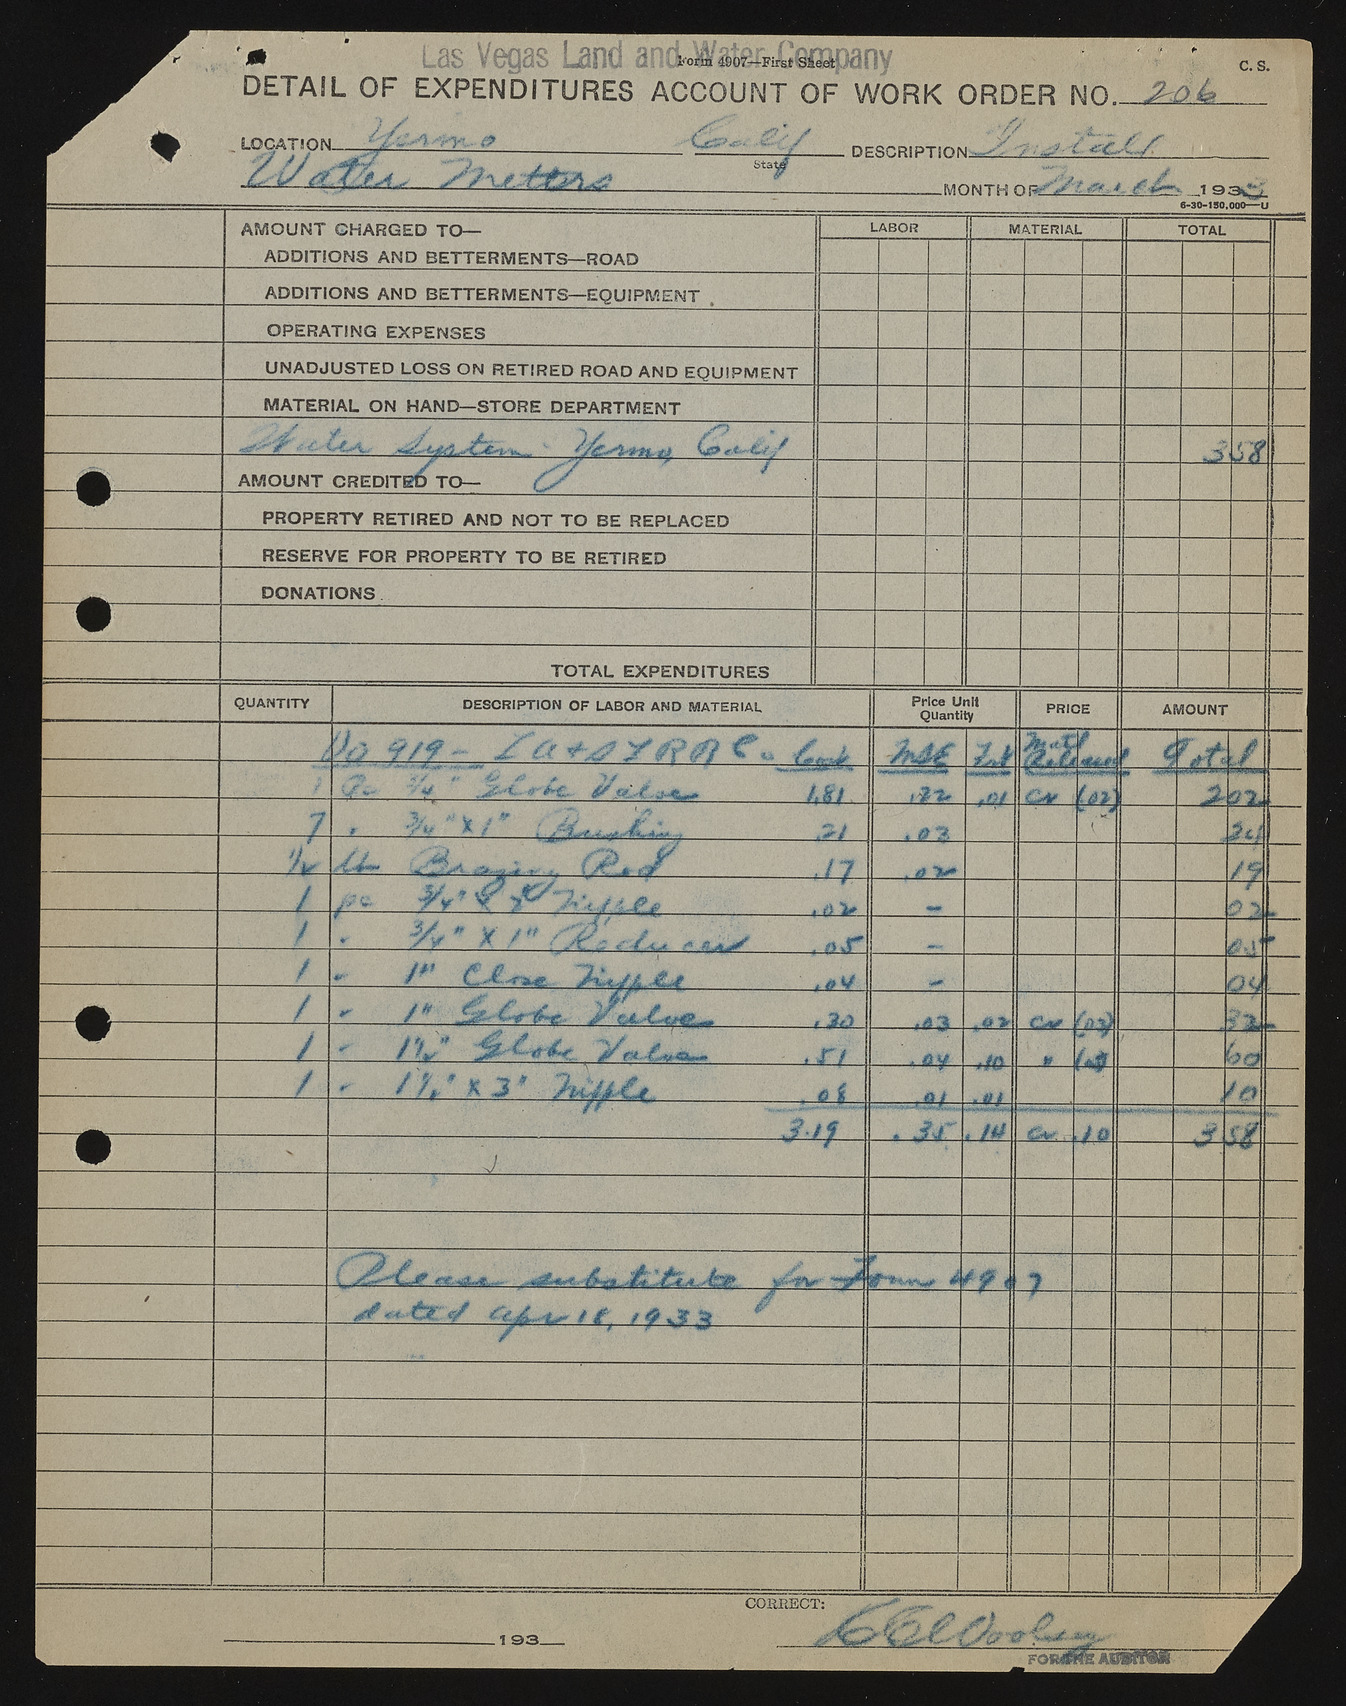 Las Vegas Land and Water Company
Form 4907—First Sheet
C. S.
DETAIL OF EXPENDITURES ACCOUNT OF WORK ORDER NO. 206
LOCATION Yermo Calif DESCRIPTION Install
State
Water Metters MONTH OF March 1933
6-30-150,000—U
AMOUNT CHARGED TO— LABOR MATERIAL TOTAL
ADDITIONS AND BETTERMENTS—ROAD
ADDITIONS AND BETTERMENTS—EQUIPMENT
OPERATING EXPENSES
UNADJUSTED LOSS ON RETIRED ROAD AND EQUIPMENT
MATERIAL ON HAND—STORE DEPARTMENT
Water System - Yermo, Calif 3 58
AMOUNT CREDITED TO—
PROPERTY RETIRED AND NOT TO BE REPLACED
RESERVE FOR PROPERTY TO BE RETIRED
DONATIONS
TOTAL EXPENDITURES
QUANTITY DESCRIPTION OF LABOR AND MATERIAL Price Unit Quantity PRICE AMOUNT
919 - LA & SL RR Co. Cook M&E Frt Matl Released Total
1 Pc 3/4" Globe Valve 1.81 .22 .01 cr (.02) 2 02
7 " 3/4" X 1" Bushing .21 .03 24
1/2 lb Brazing Rod .17 .02 19
1 pc 3/4" X Nipple .02 - 02
1 " 3/4" X 1" Reducer .05 - 05
1 " 1" Close Nipple .04 - 04
1 " 1" Globe Valve .30 .03 .02 cr (.03) 32
1 " 1 1/2" Globe Valve .51 .04 .10 " (.05) 60
1 " 1 1/2" X 3" Nipple .08 .01 .01 10
3.19 .35 .14 cr .10 3 58
Please substitute for Form 4907
dated Apr 18, 1933
CORRECT:
193 Woolsey
FOR THE AUDITOR